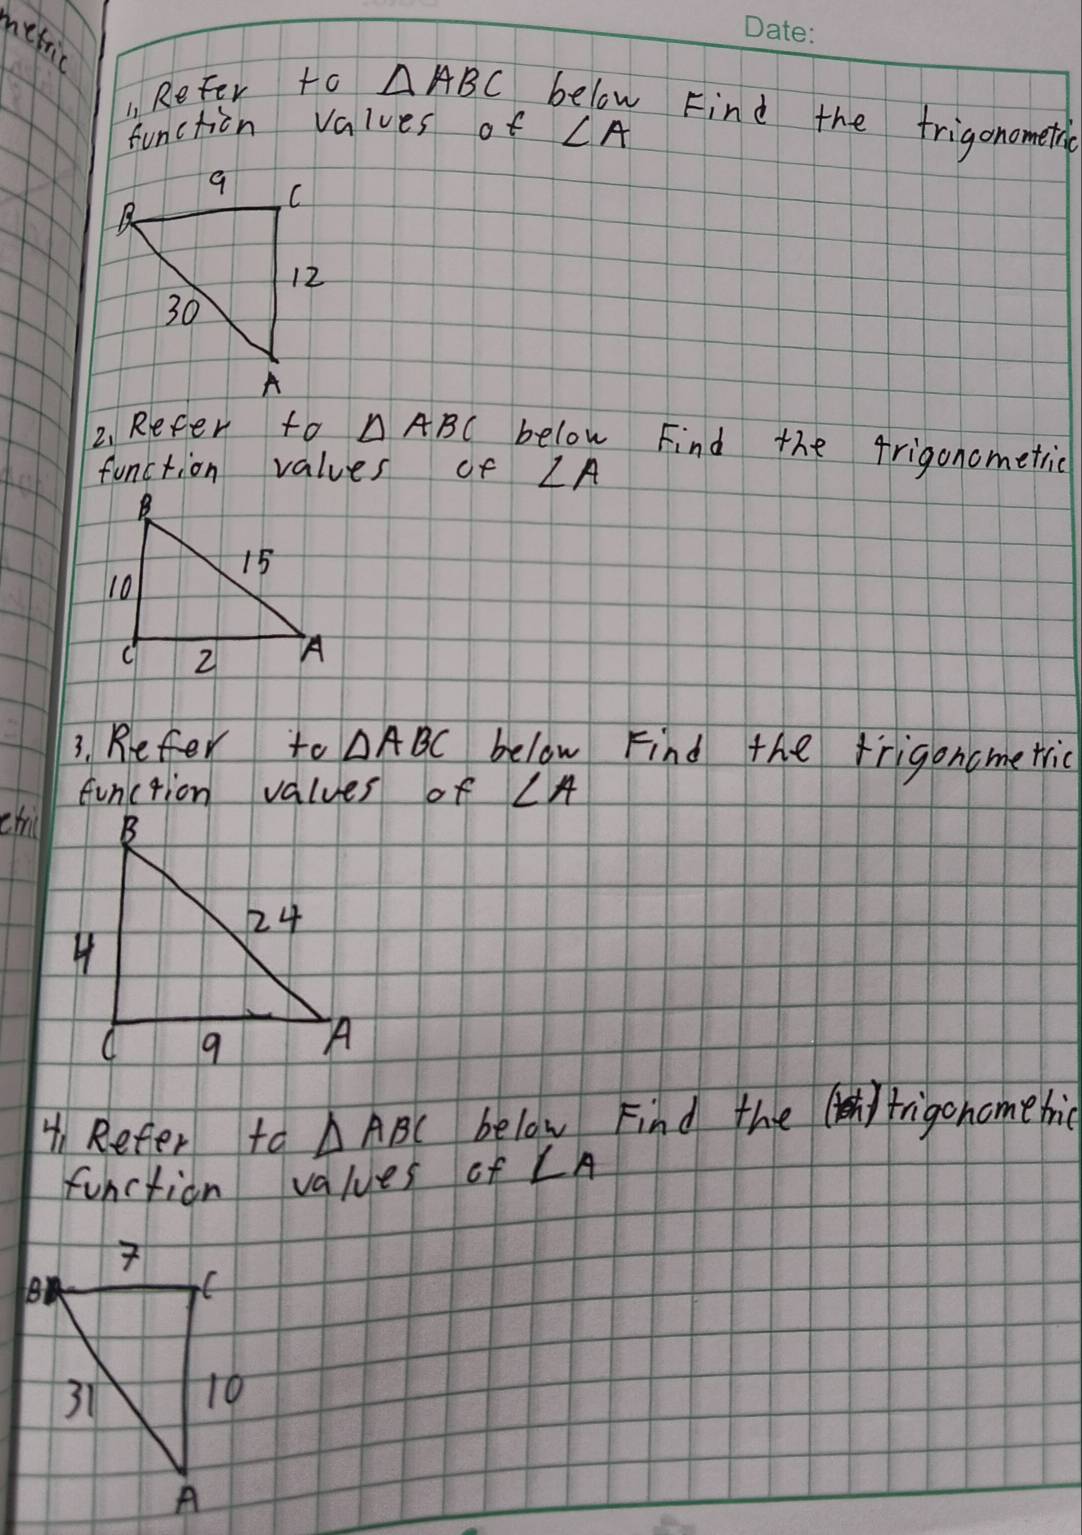 metric
Date:
1, Refer to △ABC below Find the trigonometric
function values of ∠A
9
B
C
12
30
A
2, Refer to △ABC below Find the trigonometric
function values of ∠A
B
15
10
C
2
A
3. Refer to △ABC below Find the trigonometric
function values of ∠A
B
24
4
C
9
A
4, Refer to △ABC below Find the trigonometric
function values of ∠A
7
B
C
31
10
A